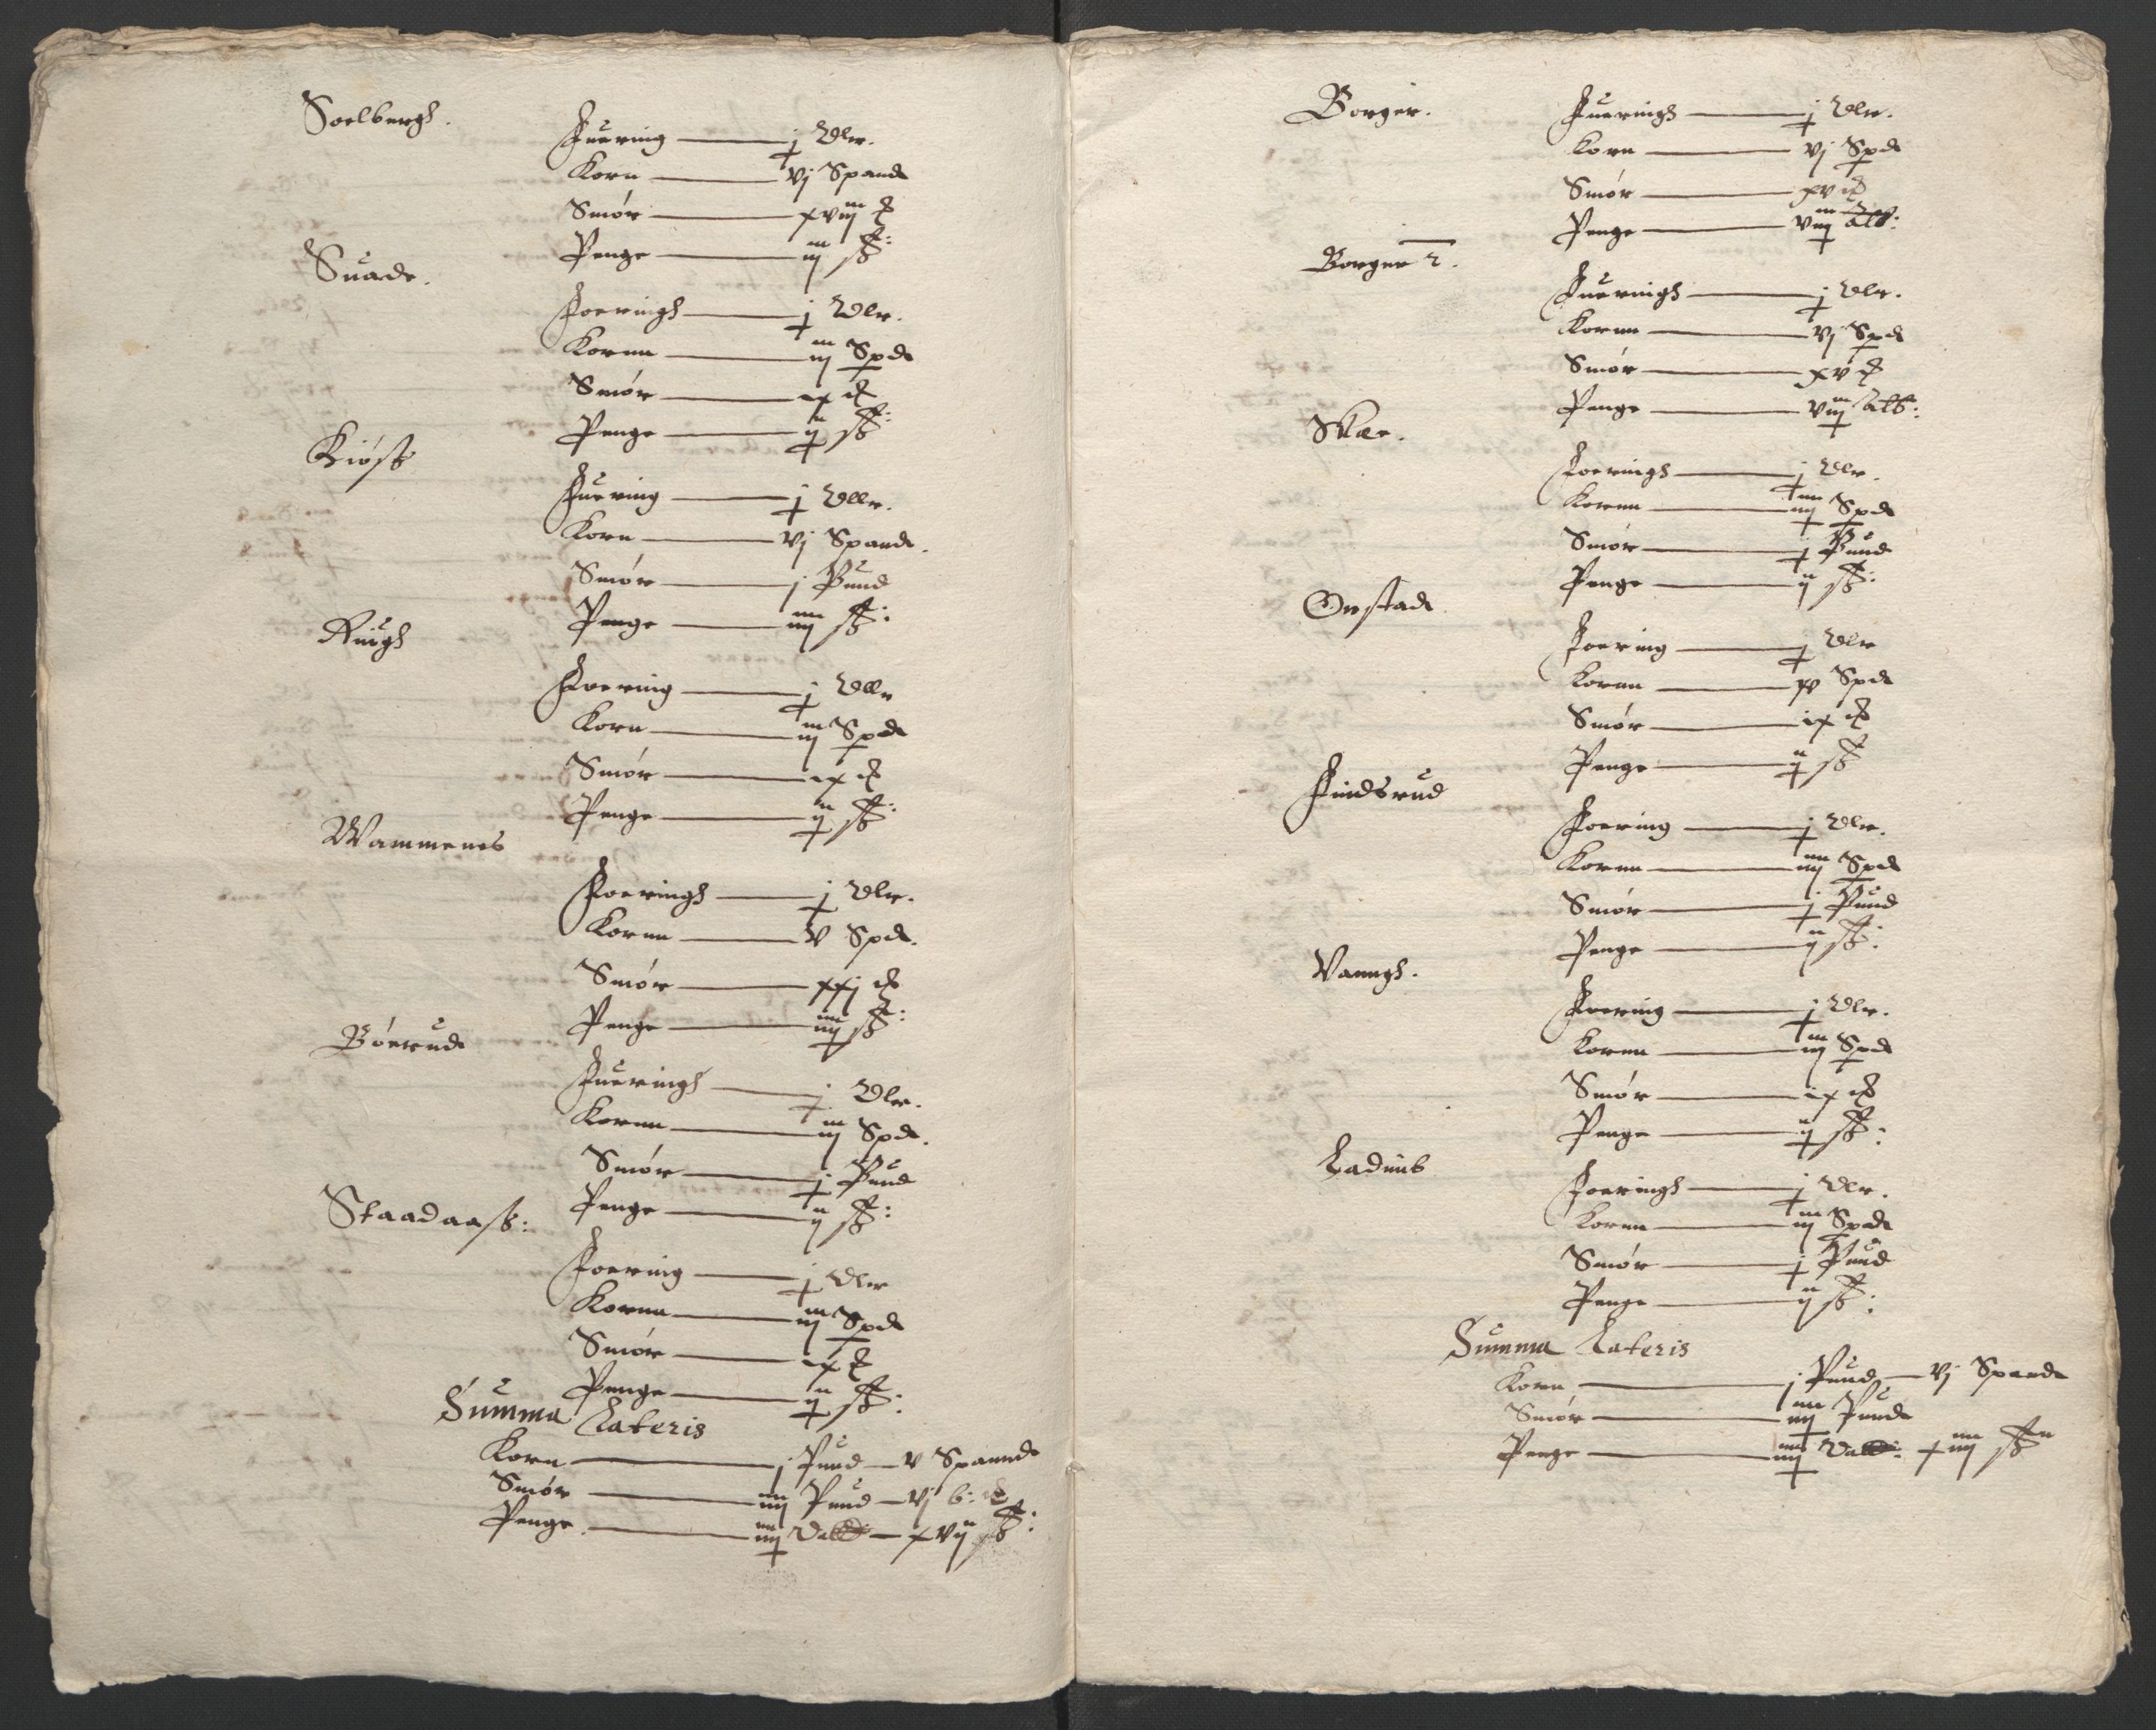 Soelbergh.
Fuering — j Dlr.
Korn — vj Spand
Smör — xviij
Penge — iij ß:
Suade.
Foeringh — j Dlr.
Kornn — iij Spd
Smör — ix
Penge — ij ß:
Kiöß
Fuering — j Dllr.
Korn — vj Spande.
Smör — j Pund
Penge — iiij ß:
Foering — j Dllr
Korn — iij Spd
Smör — ix
Penge — ij ß:
Wammenes
Foeringh — j Dlr.
Kornn — v Spd.
Smör — xxj
Penge — iiij ß:
Börrud
Fueringh — j Dlr.
Kornn — iij Spd.
Smör — j Pund
Penge — ij ß:
Staadaaß:
Foering — j Dlr
Kornn — iij Spd
Smör — ix
Penge — ij ß:
Summa Lateris
Korn — j Pund — v Spannd
Smör — iiij Pund — vj b:
Penge — iiij — xvij ß:
Borger.
Fueringh — j Dlr.
Korn — vj Spd
Smör — xv
Penge — viij alb:
Borger 2.
Fueringh — j Dlr.
Kornn — vj Spd
Smör — xv
Penge — viij alb:
Skae.
Foeringh — j Dlr.
Kornn — iiij Spd
Smör — j Pund
Penge — ij ß:
Onstad
Foering — j Dlr
Kornn — Spd
Smör — ix
Penge — ij ß
Findsrud
Foering — j Dlr.
Kornn — iiij Spd
Smör — j Pund
Penge — ij ß:
Vanngh.
Foering — j Dlr.
Kornn — iij Spd
Smör — ix
Penge — ij ß:
Ladims
Foeringh — j Dlr.
Kornn — iij Spd
Smör — j Pund
Penge — ij ß:
Summa Lateris
Korn — j Pund — vj Spande
Smör — iiij Pund
Penge — iiij — xiiij ß